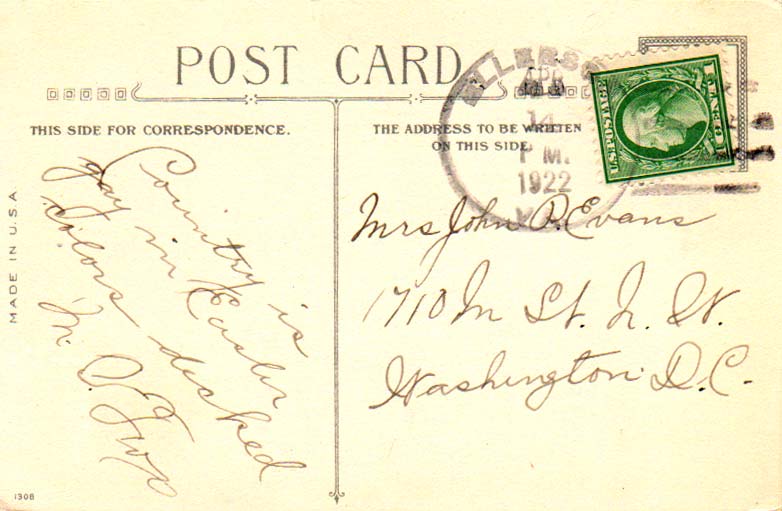 POST CARD
THIS SIDE FOR CORRESPONDENCE.
THE ADDRESS TO BE WRITTEN
ON THIS SIDE.
APR
14
P M.
1922
VA
U.S. POSTAGE
1 CENT 1
MADE IN U.S.A.
Country is
gay in Easter
Colors decked
M. O.
Mrs John P. Evans
1710 M St. N. W.
Washington D.C.
1308